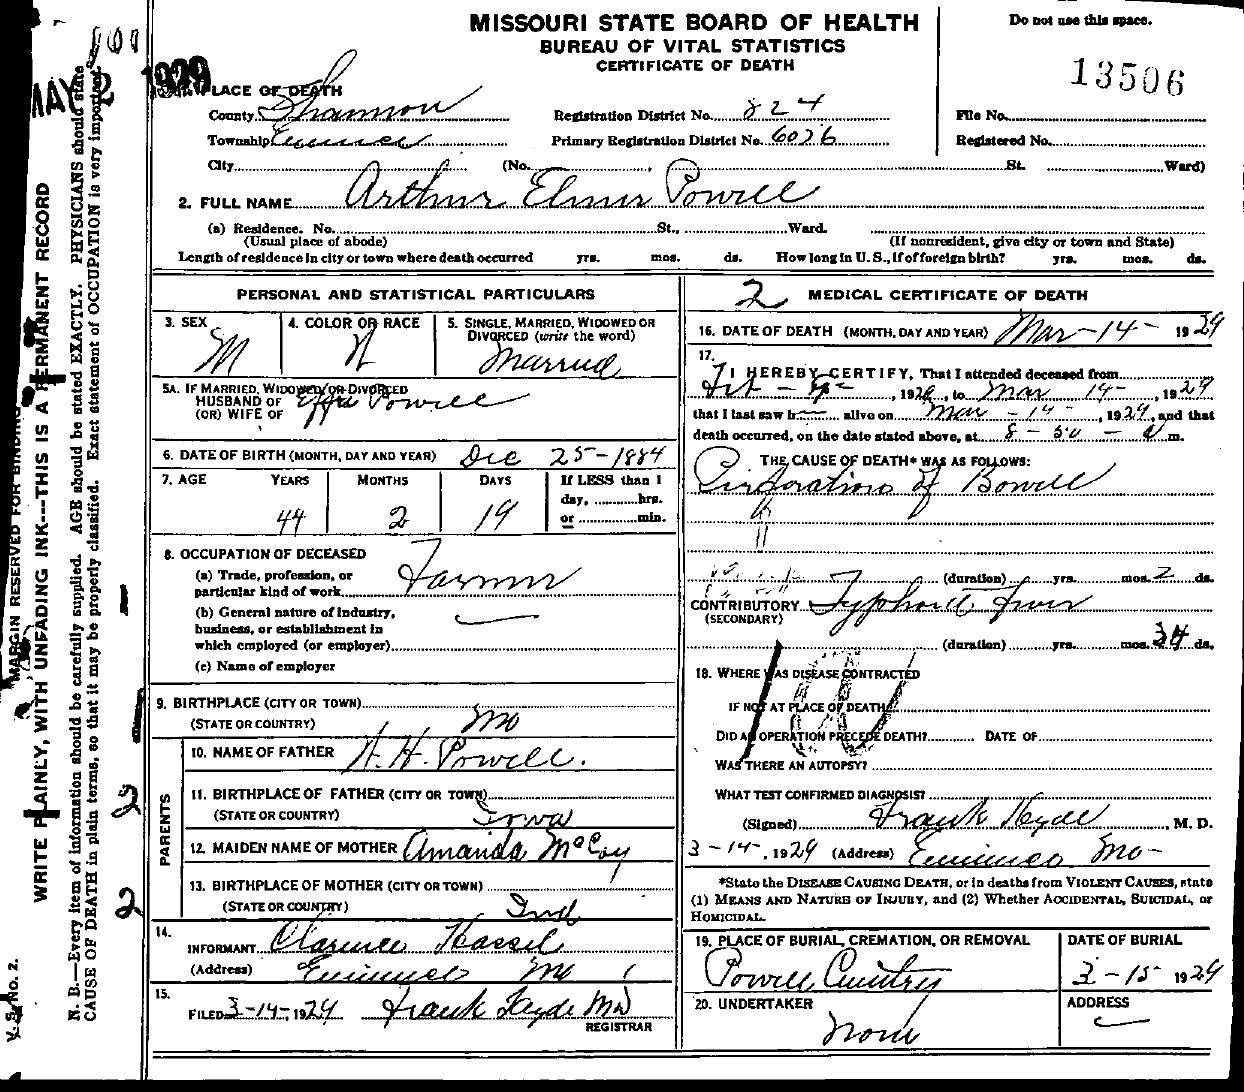 MISSOURI STATE BOARD OF HEALTH
BUREAU OF VITAL STATISTICS
CERTIFICATE OF DEATH
Do not use this space.
13506
MAY 2 1929
PLACE OF DEATH
County Shannon Registration District No. 824 File No.
Township Eminence Primary Registration District No. 6026 Registered No.
City (No. St. Ward)
2. FULL NAME Arthur Elmer Powell
(a) Residence. No. St., Ward.
(Usual place of abode) (If nonresident, give city or town and State)
Length of residence in city or town where death occurred yrs. mos. ds. How long in U.S., if of foreign birth? yrs. mos. ds.
PERSONAL AND STATISTICAL PARTICULARS
3. SEX
M
4. COLOR OR RACE
W
5. SINGLE, MARRIED, WIDOWED OR
DIVORCED (write the word)
Married
5A. IF MARRIED, WIDOWED, OR DIVORCED
HUSBAND OF Effie Powell
(OR) WIFE OF
6. DATE OF BIRTH (MONTH, DAY AND YEAR) Dec 25-1884
7. AGE YEARS MONTHS DAYS If LESS than 1
day, hrs.
or min.
44 2 19
8. OCCUPATION OF DECEASED
(a) Trade, profession, or
particular kind of work Farmer
(b) General nature of industry,
business, or establishment in
which employed (or employer)
(c) Name of employer
9. BIRTHPLACE (CITY OR TOWN)
(STATE OR COUNTRY) Mo
PARENTS
10. NAME OF FATHER Powell.
11. BIRTHPLACE OF FATHER (CITY OR TOWN)
(STATE OR COUNTRY) Iowa
12. MAIDEN NAME OF MOTHER Amanda McCoy
13. BIRTHPLACE OF MOTHER (CITY OR TOWN)
(STATE OR COUNTRY) Ind
14.
INFORMANT Clarence Hassel
(Address) Eminence Mo
15.
FILED 3-14-, 1929 Frank Hyde MD
REGISTRAR
2 MEDICAL CERTIFICATE OF DEATH
16. DATE OF DEATH (MONTH, DAY AND YEAR) Mar-14- 1929
17.
I HEREBY CERTIFY, That I attended deceased from
, 1929, to Mar 14-, 1929
that I last saw h alive on Mar-14-, 1929, and that
death occurred, on the date stated above, at 8-50- m.
THE CAUSE OF DEATH* WAS AS FOLLOWS:
Perforation of Bowell
(duration) yrs. mos. 2 ds.
CONTRIBUTORY Typhoid Fever
(SECONDARY)
(duration) yrs. mos. 34 ds.
18. WHERE WAS DISEASE CONTRACTED
IF NOT AT PLACE OF DEATH
DID AN OPERATION PRECEDE DEATH? DATE OF
WAS THERE AN AUTOPSY?
WHAT TEST CONFIRMED DIAGNOSIS?
(Signed) Frank Hyde, M. D.
3-14-, 1929 (Address) Eminence Mo-
*State the DISEASE CAUSING DEATH, or in deaths from VIOLENT CAUSES, state
(1) MEANS AND NATURE OF INJURY, and (2) Whether ACCIDENTAL, SUICIDAL, or
HOMICIDAL.
19. PLACE OF BURIAL, CREMATION, OR REMOVAL
Powell Cemetery
DATE OF BURIAL
3-15 1929
20. UNDERTAKER
None
ADDRESS
MARGIN RESERVED FOR BINDING
WRITE PLAINLY, WITH UNFADING INK---THIS IS A PERMANENT RECORD
N. B.—Every item of information should be carefully supplied. AGE should be stated EXACTLY. PHYSICIANS should state
CAUSE OF DEATH in plain terms, so that it may be properly classified. Exact statement of OCCUPATION is very important.
V. S. No. 2.
2
2